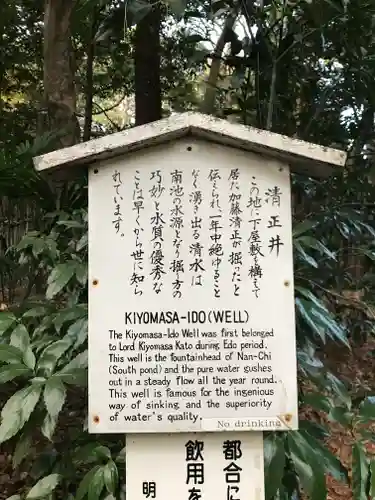 清正井
この地に下屋敷を構えて
居た加藤清正が掘ったと
伝えられ一年中絶ゆること
なく湧き出る清水は
南池の水源となり掘り方の
巧妙と水質の優秀な
ことは早くから世に知ら
れています。
KIYOMASA-IDO (WELL)
The Kiyomasa-Ido Well was first belonged
to Lord Kiyomasa Kato during Edo period.
This well is the fountainhead of Nan-Chi
(South pond) and the pure water gushes
out in a steady flow all the year round.
This well is famous for the ingenious
way of sinking, and the superiority
of water's quality.
No drinking
都合に
飲用を
明